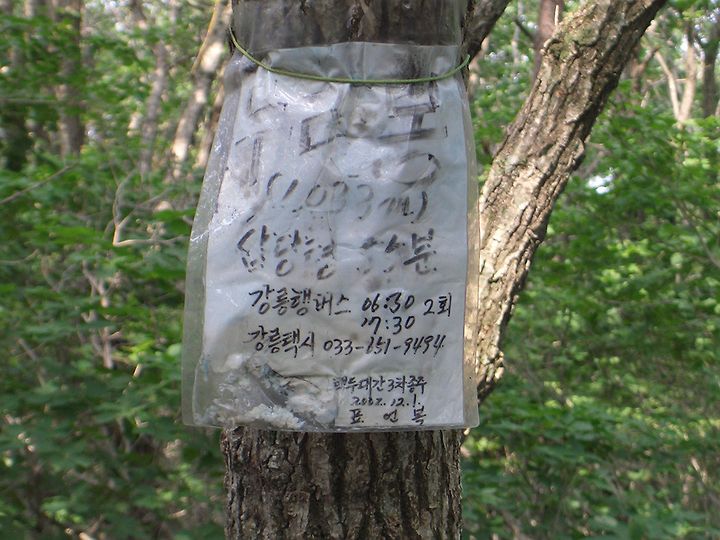 (1,033m)
삽당령 분
강릉행버스 06:30 2회
17:30
강릉택시 033-651-9494
백두대간3차종주
2002.12.1.
표 언 복